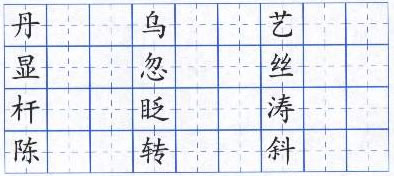 丹 乌 艺
显 忽 丝
杆 眨 涛
陈 转 斜